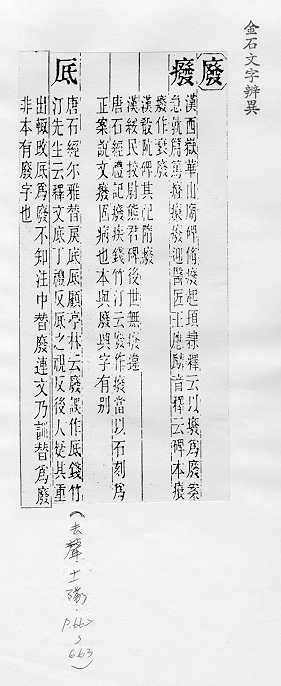 金石文字辨異
廢
癈
漢西嶽華山廟碑脩癈起頊隸釋云以癈爲廢案
急就篇篤癃癈迎醫匠王應麟音釋云碑本癈
癈作棄廢
漢殽阬碑其記隋癈
漢綏民校尉熊君碑後世無癈違
唐石經禮記癈疾錢竹汀云廢作癈當以石刻爲
正案説文癈固病也本與廢興字有别
底
唐石經尔雅替戾底底顧亭林云廢誤作底錢竹
汀先生云釋文底丁禮反底之視反後人疑其重
出輒改底爲廢不知注中替廢連文乃訓替爲廢
非本有廢字也
(去聲·十隊·
P.662
5
663)